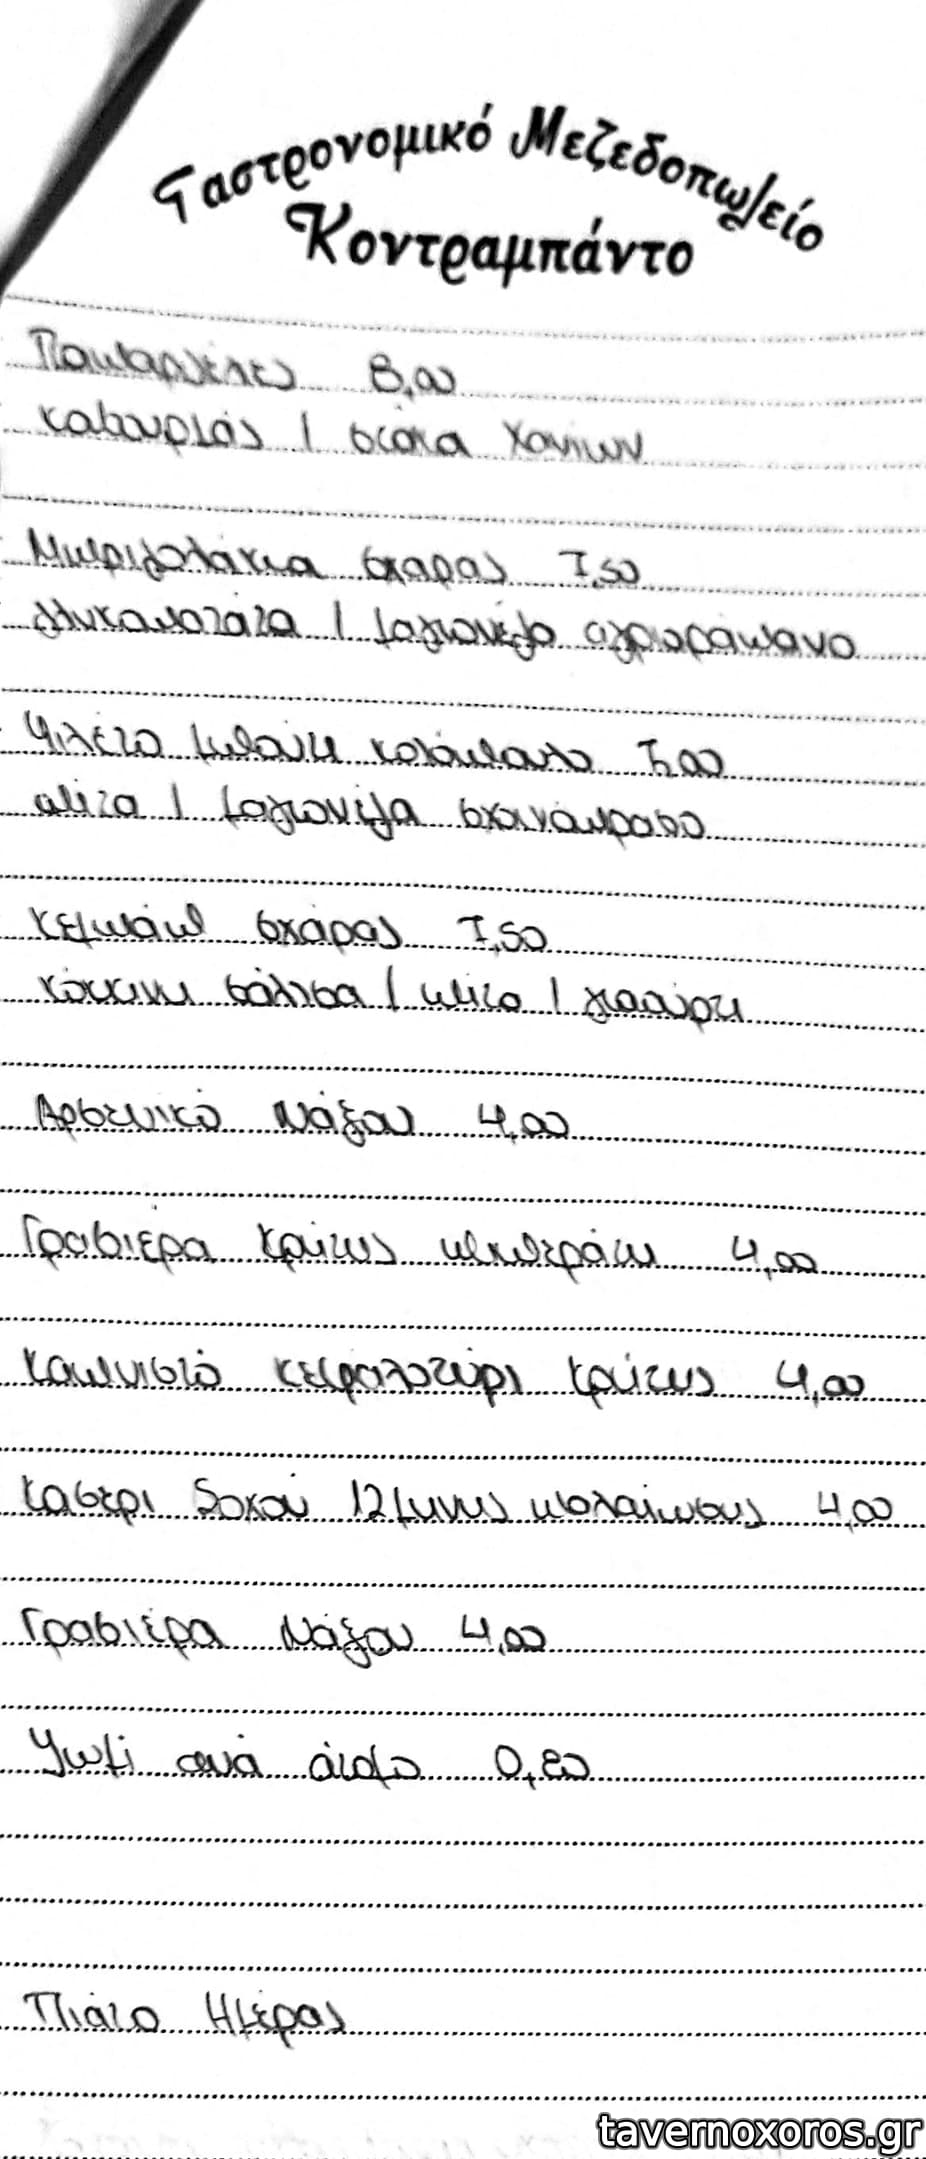 Γαστρονομικό Μεζεδοπωλείο
Κοντραμπάντο
8,00
καβουρμάς / στάκα Χανίων
Μπριζολάκια σχάρας 7,50
γλυκοπατάτα / μαγιονέζα αγριοράπανο
Φιλέτο μπούτι κοτόπουλο 7,00
πίτα / μαγιονέζα σχοινόπρασο
Κεμπάπ σχάρας 7,50
κόκκινη σάλτσα / πίτα / γιαούρτι
Αρσενικό Νάξου 4,00
Γραβιέρα Κρήτης πιπεράτη 4,00
Καπνιστό κεφαλοτύρι Κρήτης 4,00
Κασέρι Σοχού 12μηνης παλαίωσης 4,00
Γραβιέρα Νάξου 4,00
Ψωμί ανά άτομο 0,80
Πιάτο Ημέρας
tavernoxoros.gr